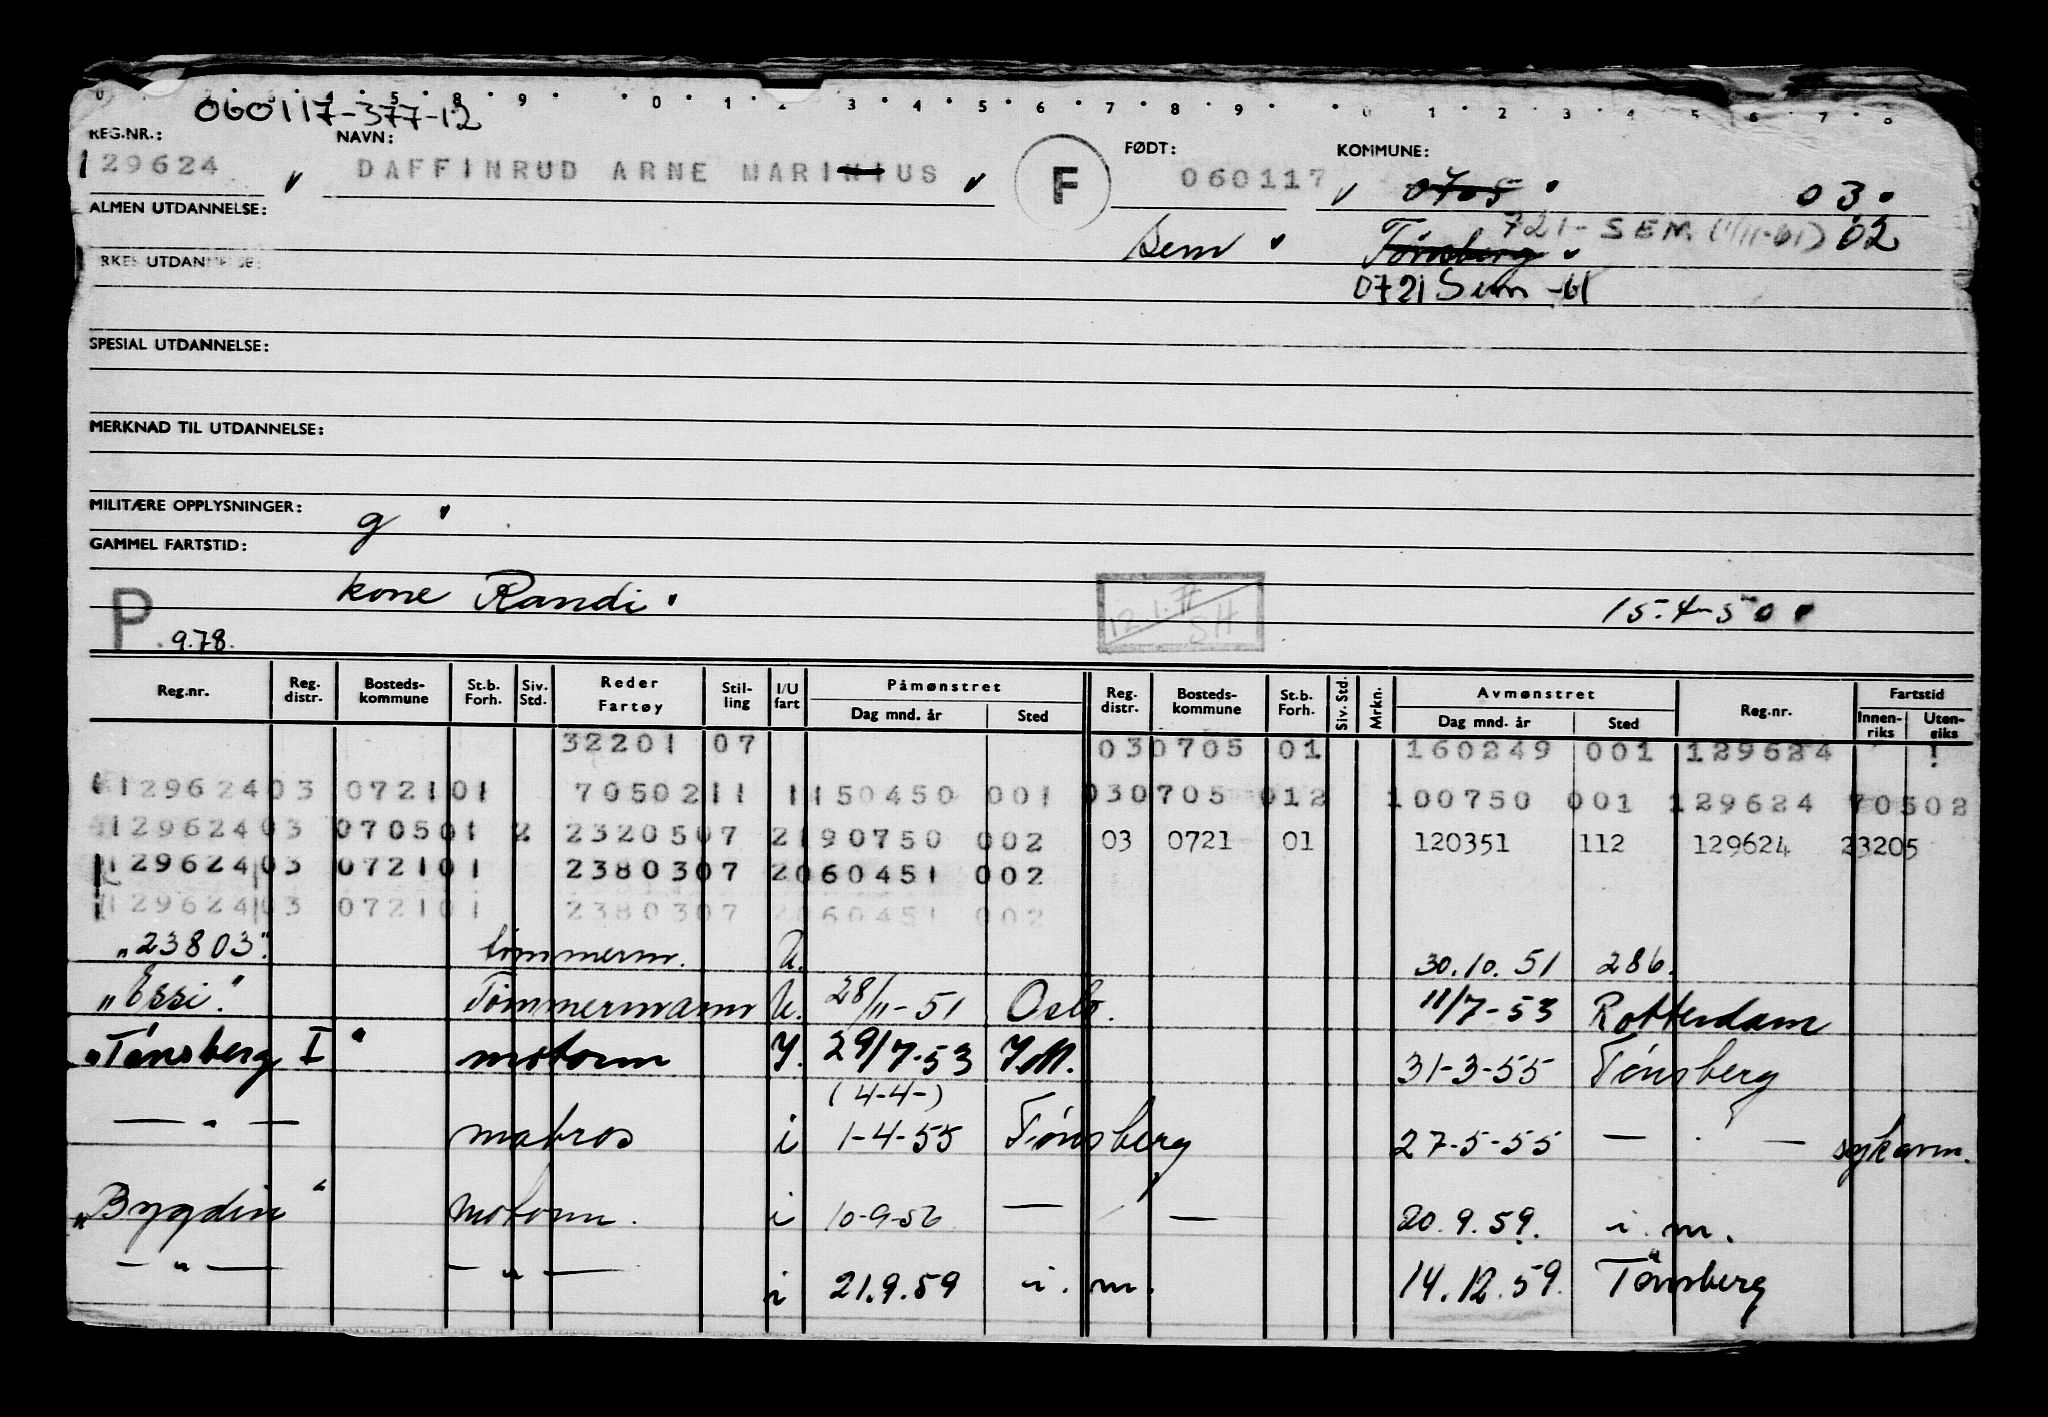 060117-377-12
REG.NR.: NAVN: FØDT: KOMMUNE:
129624 DAFFINRUD ARNE MARINIUS F 060117 0705 03
ALMEN UTDANNELSE: Sem Tønsberg 721-SEM (1/11-61) 02
YRKESUTDANNELSE: 0721 Sem -61
SPESIAL UTDANNELSE:
MERKNAD TIL UTDANNELSE:
MILITÆRE OPPLYSNINGER: g
GAMMEL FARTSTID:
P kone Randi 12.1.77 SH 15-4-50
9.78.
Reg.nr. Reg. distr. Bosteds-kommune St.b. Forh. Siv. Std. Reder Fartøy Stil-ling I/U fart Påmønstret Dag mnd. år Sted Reg. distr. Bosteds-kommune St.b. Forh. Siv. Std. Mrkn. Avmønstret Dag mnd. år Sted Reg.nr. Fartstid Innen-riks Uten-riks
32201 07 03 0705 01 160249 001 129624
129624 03 0721 01 70502 11 1 150450 001 03 0705 012 100750 001 129624 70502
129624 03 0705 01 2 23205 07 2 190750 002 03 0721 01 120351 112 129624 23205
129624 03 0721 01 23803 07 2 060451 002
129624 03 0721 01 23803 07 2 060451 002
"23803". tømmerm. U. 30.10.51 286.
"Essi". Tømmermann U. 28/11-51 Oslo. 11/7-53 Rotterdam
"Tønsberg I" motorm I. 29/7-53 I.M. 31-3-55 Tønsberg
(4-4-)
— " — matros i 1-4-55 Tønsberg 27-5-55 — " — sykavm.
"Bygdin" motorm. i 10-9-56 — " — 20.9.59. i.m.
— " — — " — i 21.9.59 i.m. 14.12.59. Tønsberg